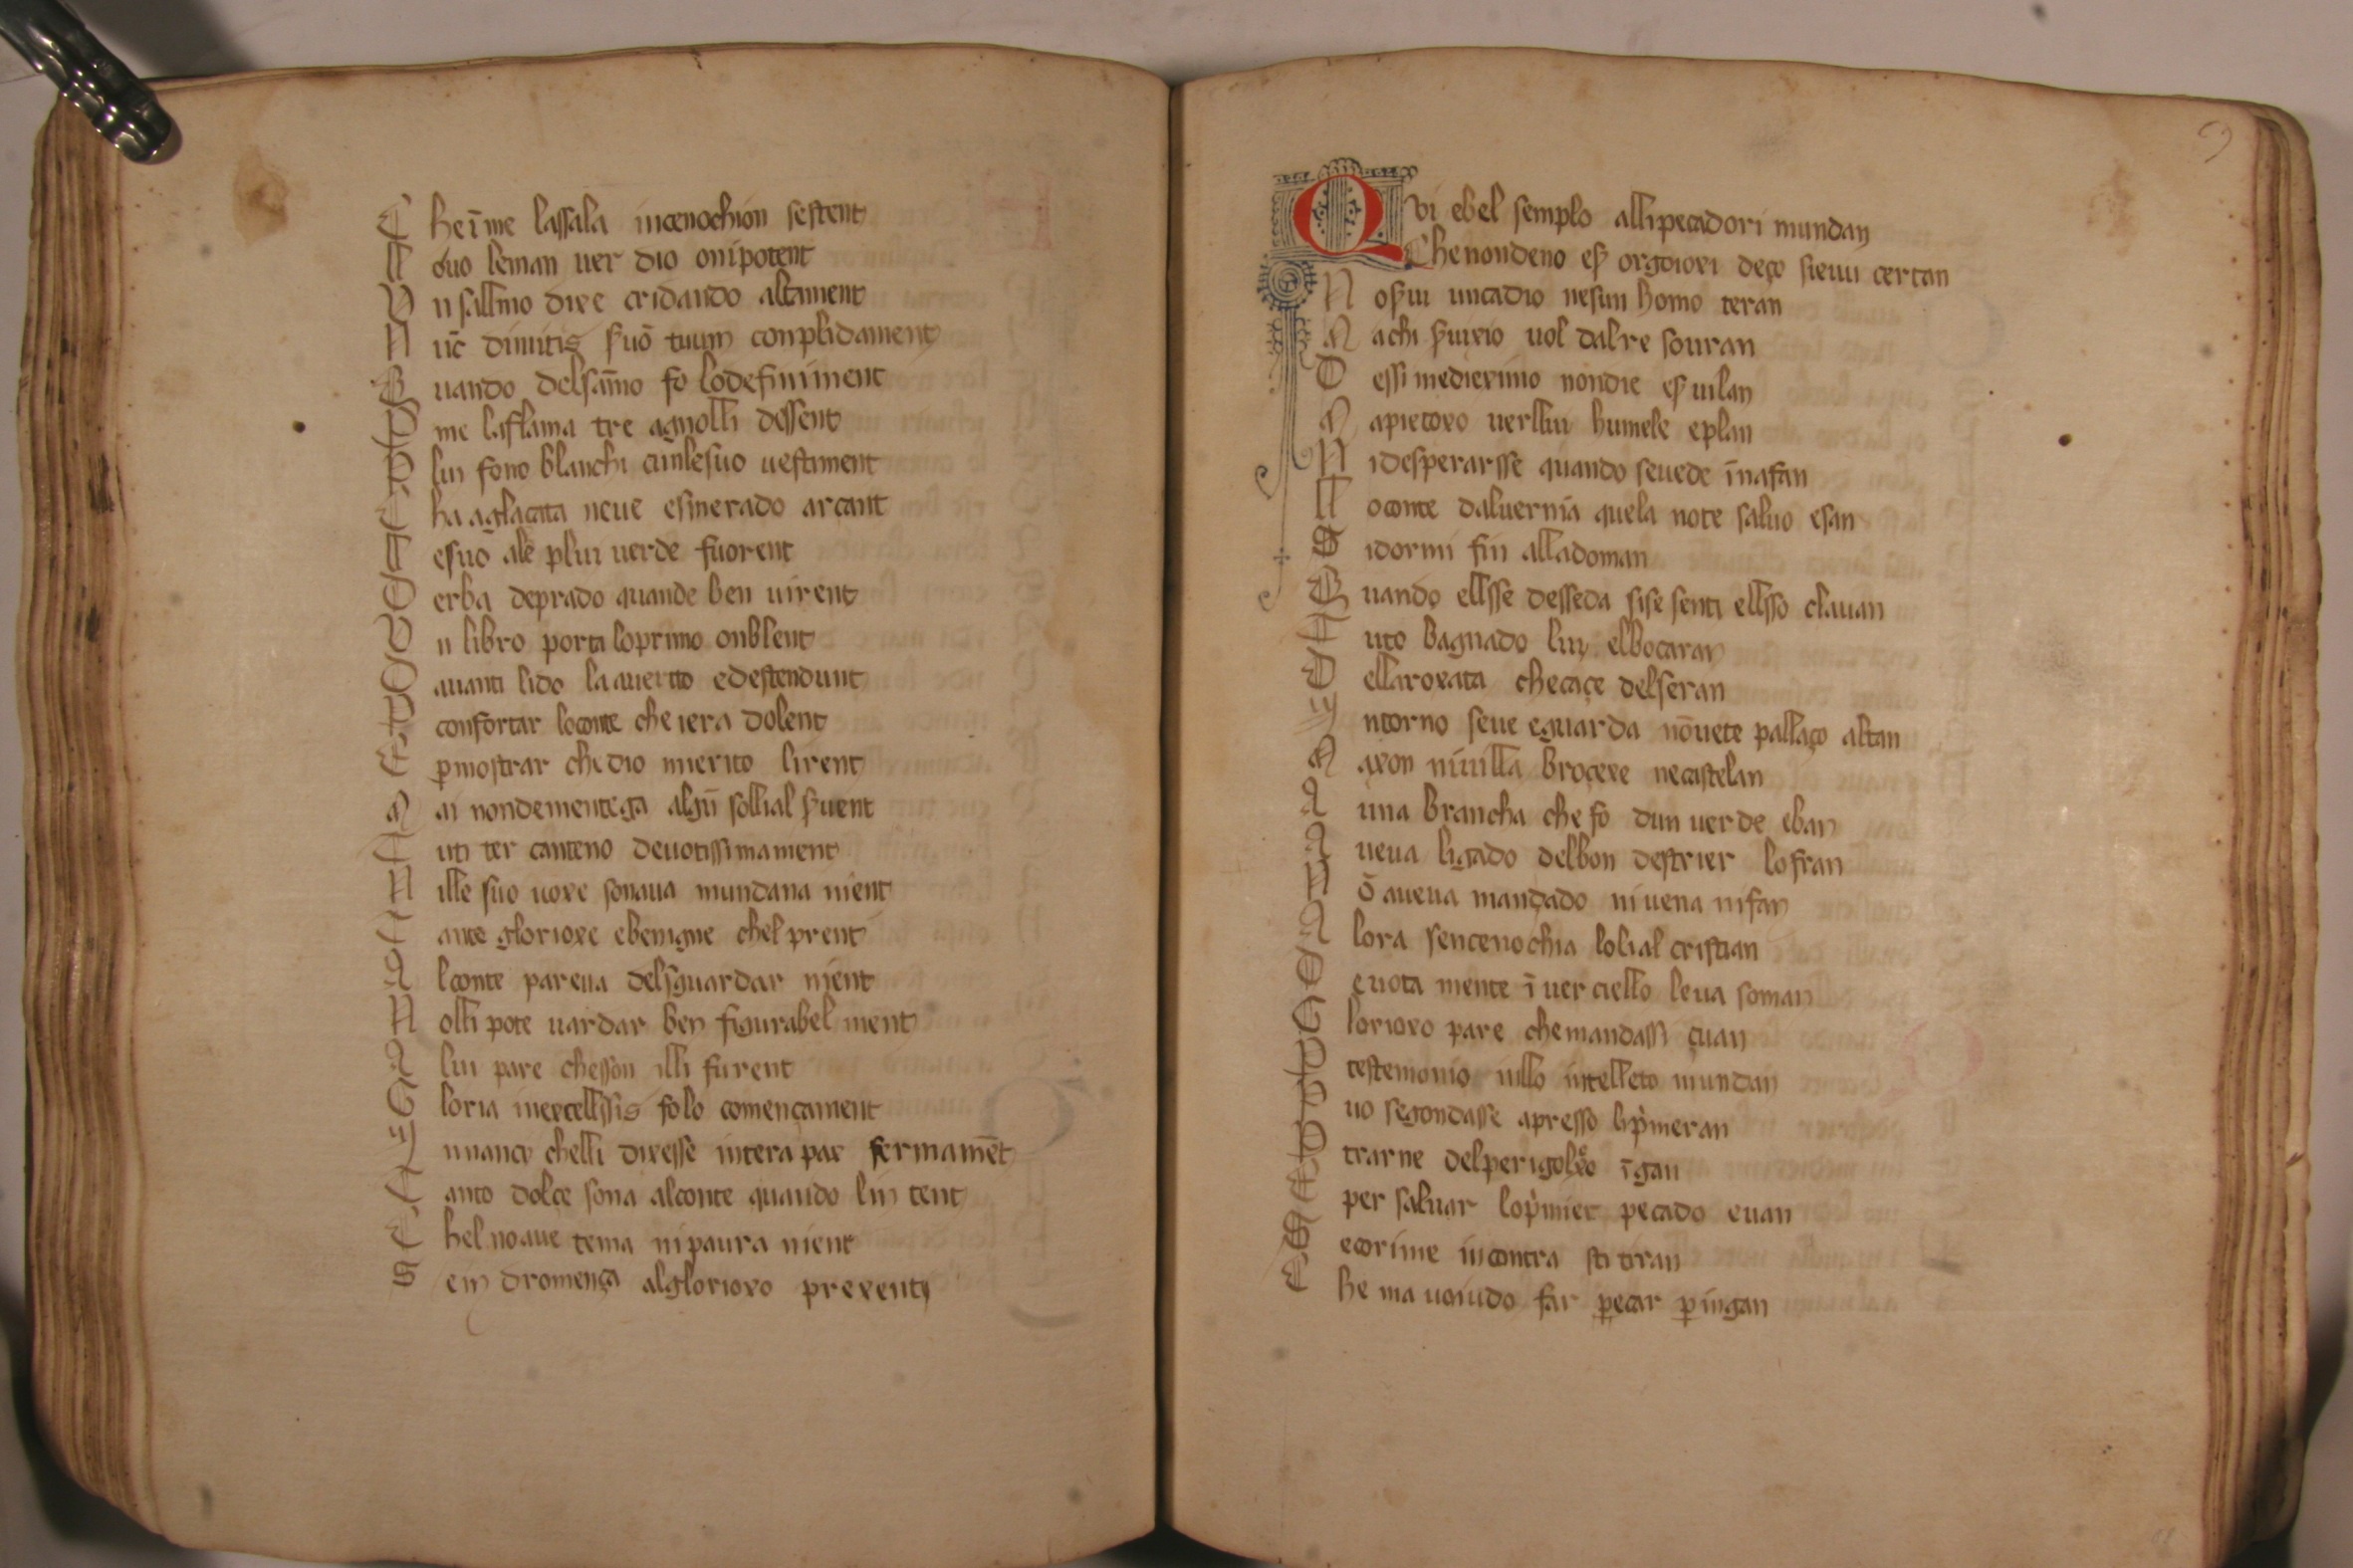 C heīme lassala incenochion sestent
L ouo leman uer dio onipotent
V n sallmo dixe cridando altament
N uc̄ dimitis ẜuō tuum conplidament
Q uando delsam̄o fo lodefiniment
D me laflama tre agnolli dessent
D lui fono blanchi cunlesuo uestiment
C ha aglaçata neue esmerado arçant
L esuō ale plui uerde fuorent
D erba deprado quande ben uirent
V n libro porta loprimo onblent
D auanti lido la auerto edestendunt
D confortar loconte che iera dolent
E ꝑmostrar chedio merito lirent
M ai nondementega algū sollial ẜuent
T uti ter canteno deuotissimament
N ille suo uoxe sonaua mundana nient
T ante glorioxe ebenigne chel prent
A lconte pareua delsguardar nient
N olli pote uardar ben figurabel ment
A lui pare chesson illi furent
G loria inexcellssis folo començament
I nnançi chelli dixesse intera pax fermamēt
T anto dolçe sona alconte quando lin tent
C hel noaue tema ni paura nient
S ein dromença alglorioxo prexenti
59
Q vi ebel semplo alli pecadori mundan
C he nondeno eẜ orgoioxi deço sieuu certan
N oẜui uncadio nesun homo teran
M achi ẜuixio uol dalre souran
D essi medieximo nondie eẜ uilan
M apietoxo uerllui humele eplan
N idesperarsse quando seuede īnafan
L oconte daluernia quela note saluo esan
S idormi fin alladoman
Q uando ellsse desseda sise senti ellsso clauan
T uto bagnado lui elboçaran
D ellaroxata checaçe delseran
I ntorno seue eguarda nōuete pallaço altan
M axon niuilla broçexe necastelan
A una brancha che fo dun uerde eban
A ueua ligado delbon destrier lofran
N ō aueua mançado niuena nifan
A lora sencenochia lolial cristian
D euota mente ī uer ciello leua soman
G lorioxo pare chemandassi çuan
D testemonio inllo intelleto mundan
D uo segondasse apresso lip̄meran
D trarne delperigoloxo īgan
E per saluar lop̄mier pecado euan
S ecorime incontra sti tiran
C he ma uoiudo far ꝑecar ꝑ ingan